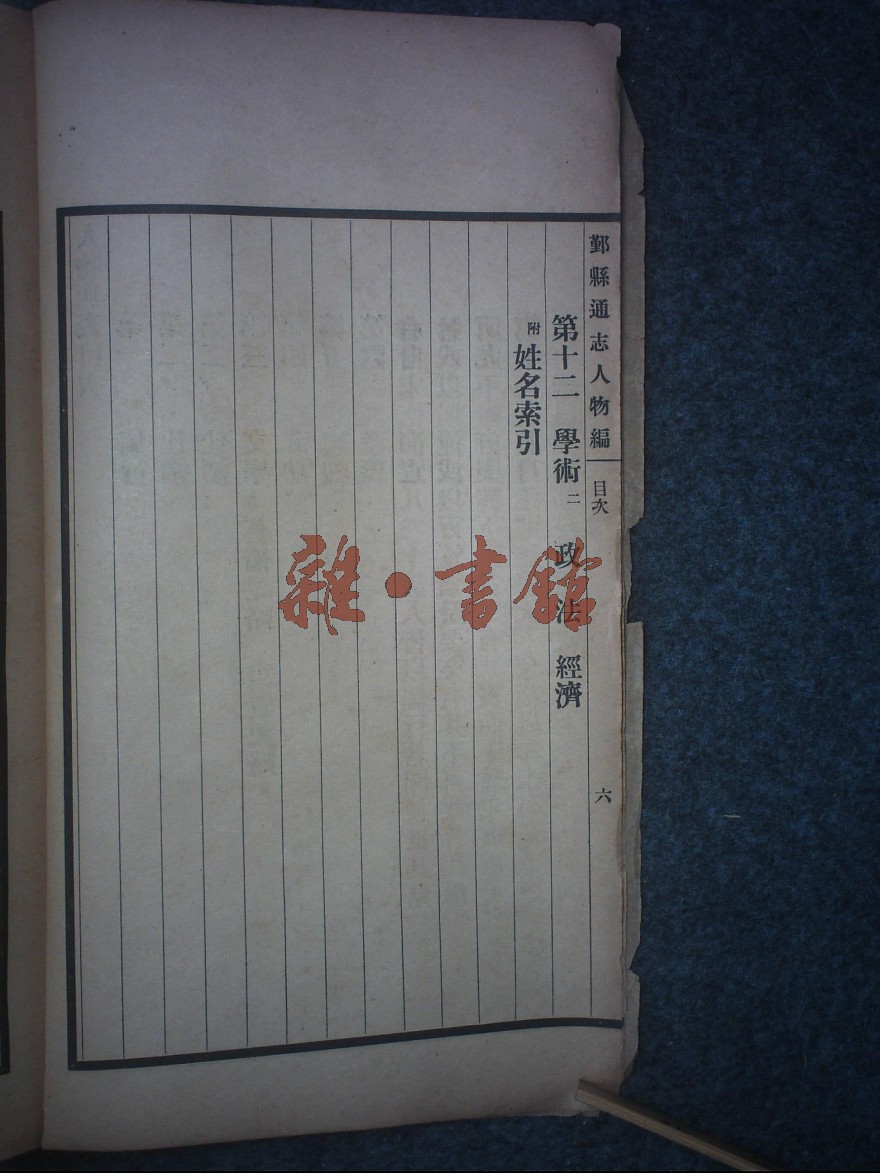 鄞縣通志人物編 目次 六
第十二 學術二 政法 經濟
附姓名索引
雜·書館